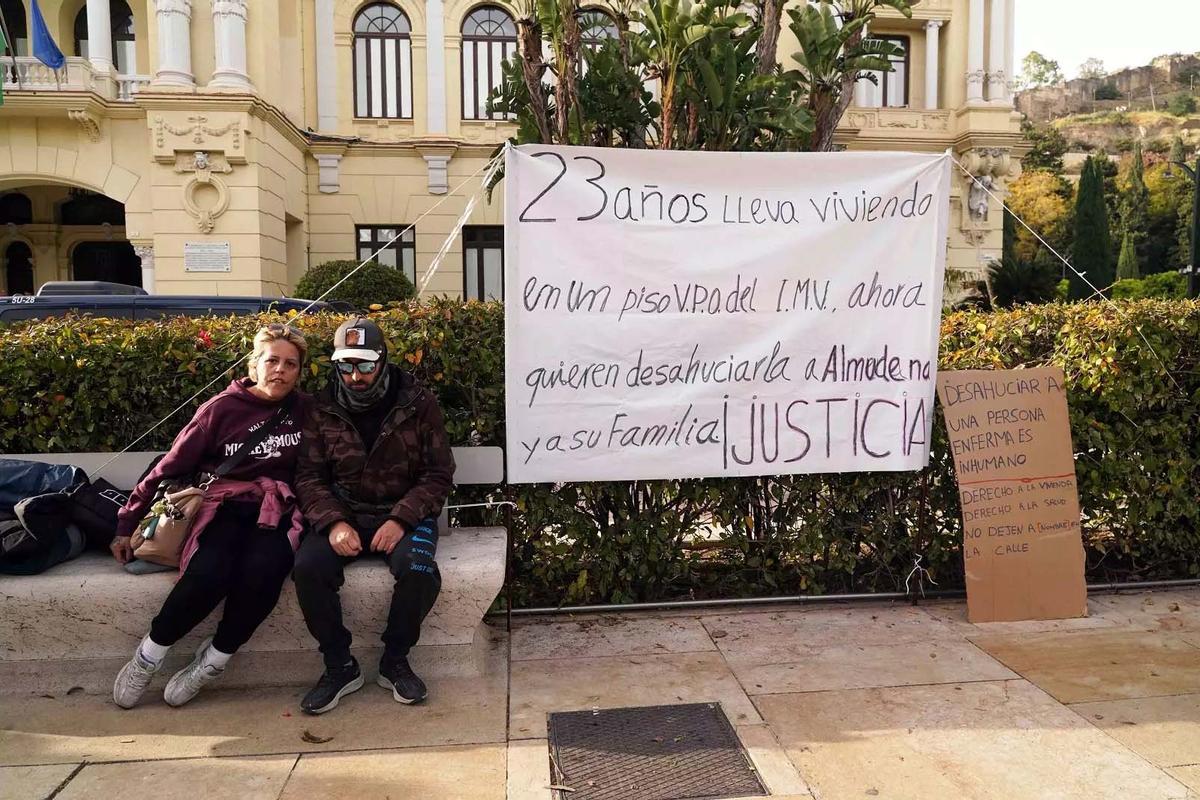 23 años LLeva viviendo
en un piso V.P.O. del I.M.V., ahora
quieren desahuciarla a Almudena
y a su Familia ¡JUSTICIA
DESAHUCIAR A
UNA PERSONA
ENFERMA ES
INHUMANO
DERECHO A LA VIVIENDA
DERECHO A LA SALUD
NO DEJEN A [NOMBRE] EN
LA CALLE
MICKEY
MOUSE
SU-28